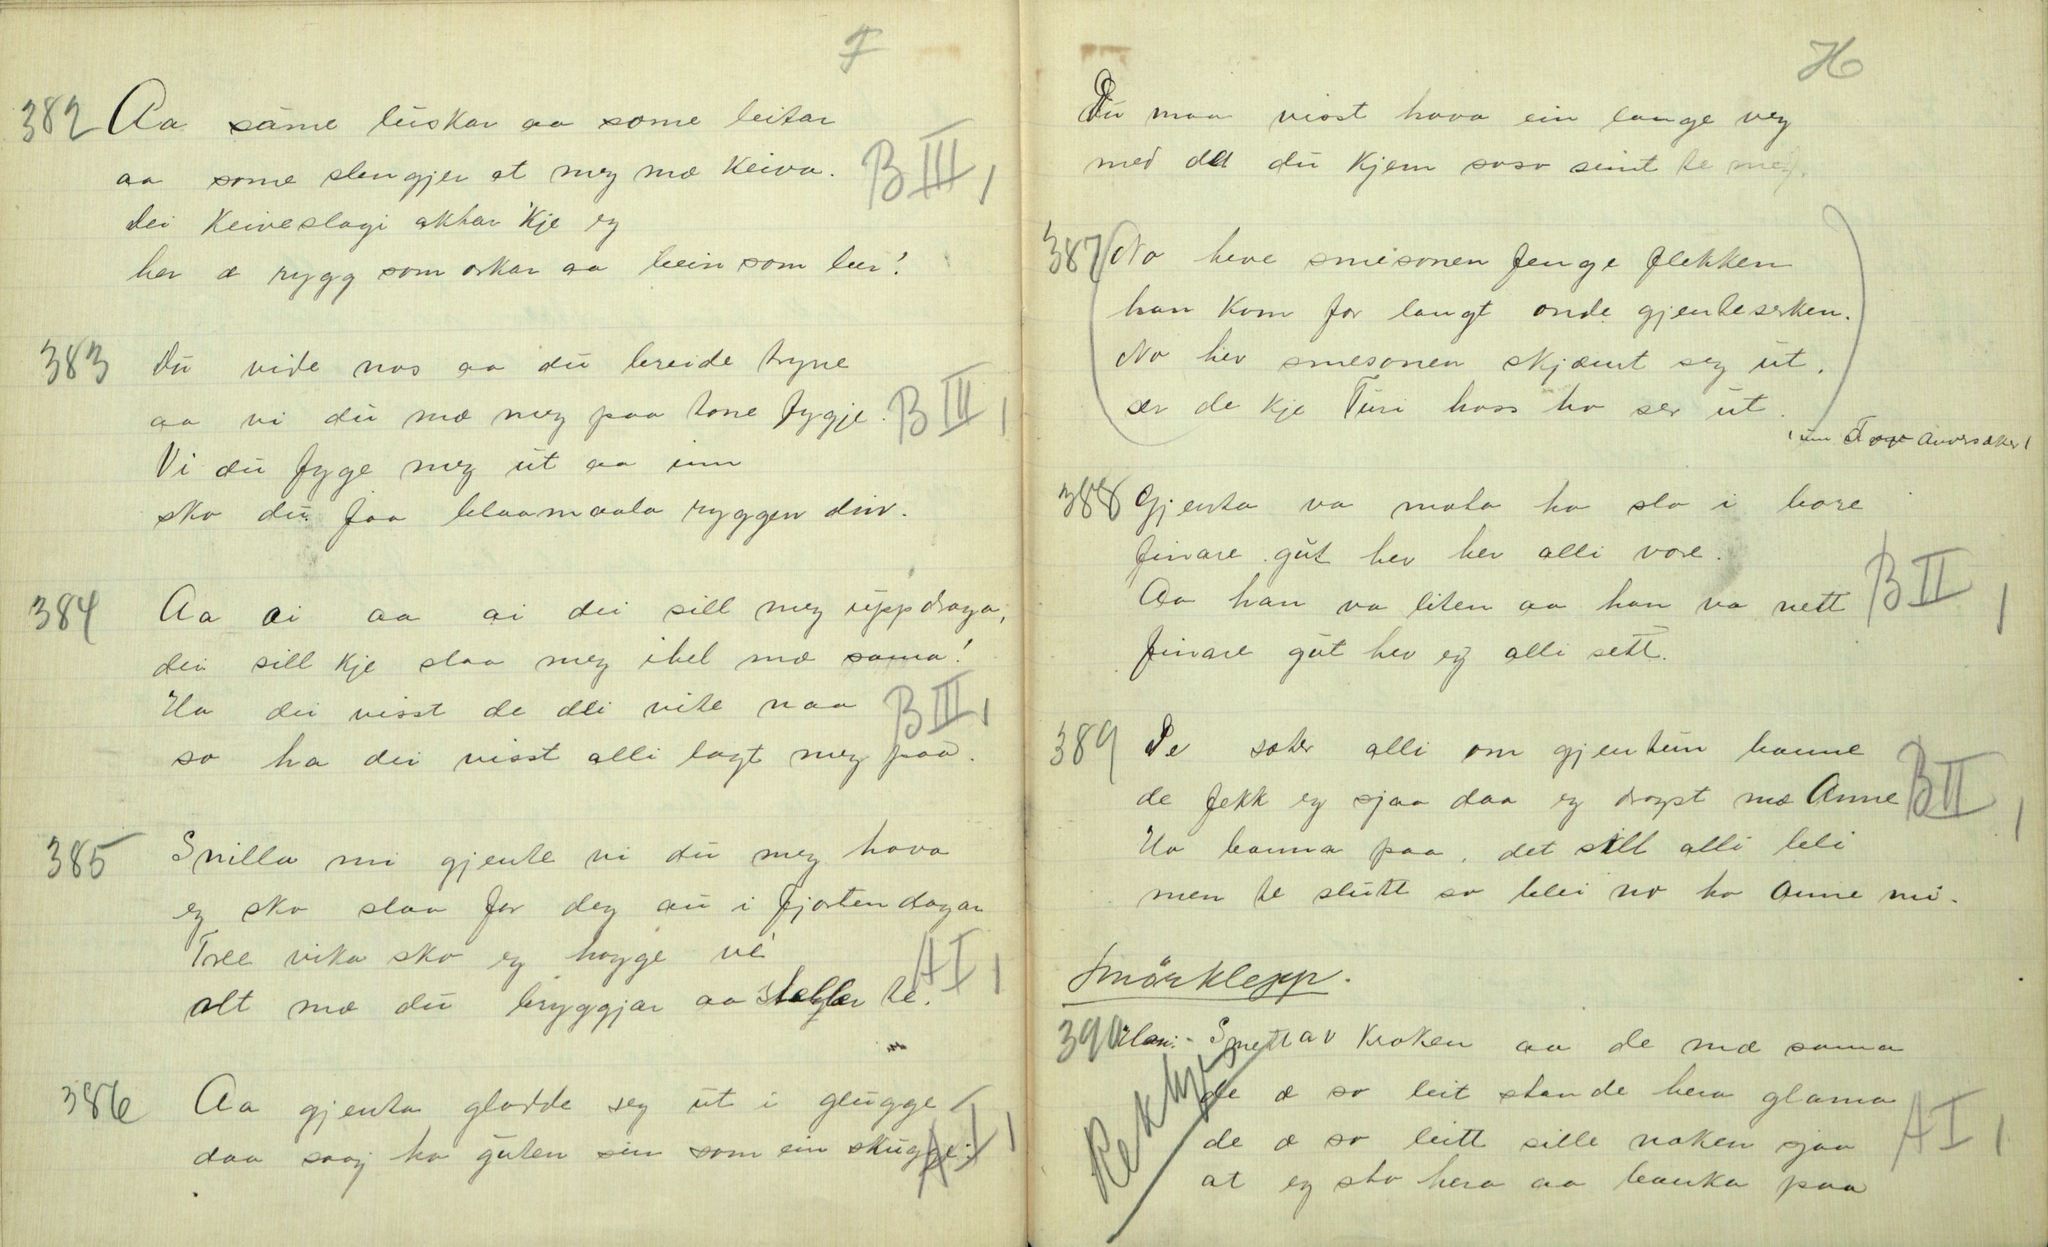 F
382 Aa same luskar aa some leitar
aa some slengjer at meg mæ Keiva.
B III,
Dei Keiveslagi aktar 'kje eg
her æ rygg som orkar aa bein som ber!
383 Du vide nos aa du breide tryne
aa vi du mæ meg paa tone fygje.
B III,
Vi du fyge meg ut aa inn
sko du faa blaamaala ryggen din.
384 Aa ai aa ai dei sill meg uppdraga,
dei sill kje slaa meg ihel mæ sama!
Ha dei visst de dei vite naa
B III,
so ha dei visst alli lagt meg paa.
385 Snilla mi gjente vi du meg hava
eg sko slaa for deg au i fjorten dagar
Tree vika sko eg hogge ve
A I,
alt mæ du bryggjar aa steller te.
386 Aa gjenta gladde seg ut i glugge
A I,
daa saag ho guten sin som ein skugge:
H
Du maa visst hava ein lange veg
med det du kjem soso seint te meg.
387 No heve smesonen fenge flekken
han kom for langt onde gjenteserken.
No hev smesonen skjæmt seg ut.
ser de kje Turi hoss ho ser ut.
388 Gjenta va mata ho slo i bore
finare gut hev her alli vore.
Aa han va liten aa han va nett
B II,
finare gut hev eg alli sett.
389 De sæter alli om gjentun banne
de fekk eg sjaa daa eg drogst mæ Anne
B II,
Ho banna paa, det sill alli bli
men te slutt so blei no ho Anne mi.
Smörklepp.
390 Han:- Smett av kroken aa de mæ sama
de æ so leit stande hera glama
A I,
de æ so leitt sille naken sjaa
at eg sto hera aa banka paa